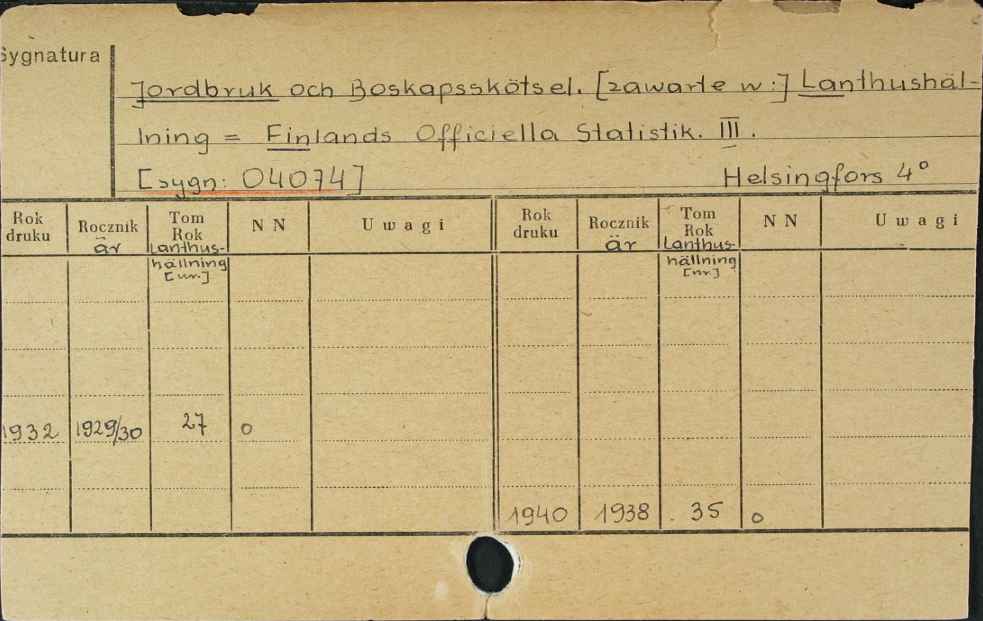 Sygnatura
Jordbruk och Boskapsskötsel. [zawarte w:] Lanthushål-
lning = Finlands Officiella Statistik. III.
[sygn: 04074] Helsingfors 4°
Rok druku | Rocznik år | Tom Rok Lanthus-hållning [nr.] | NN | Uwagi | Rok druku | Rocznik år | Tom Rok Lanthus-hållning [nr.] | NN | Uwagi
1932 | 1929/30 | 27 | o
1940 | 1938 | 35 | o